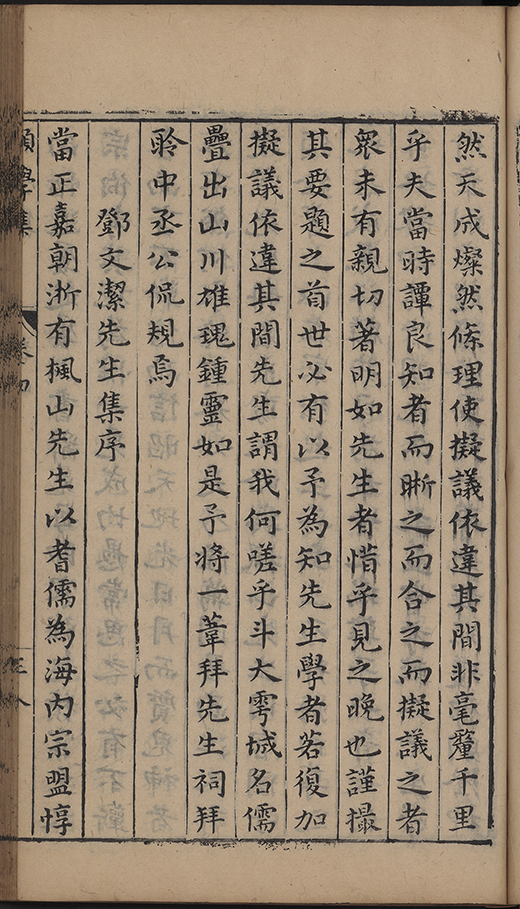 然天成燦然條理使擬議依違其間非毫釐千里
乎夫當時譚良知者而晰之而合之而擬議之者
眾未有親切著明如先生者惜乎見之晚也謹撮
其要題之首世必有以予為知先生學者若復加
擬議依違其間先生謂我何嗟乎斗大雩城名儒
疊出山川雄瑰鍾靈如是予將一葦拜先生祠拜
聆中丞公侃規焉
鄧文潔先生集序
當正嘉朝浙有楓山先生以耆儒為海內宗盟惇
學集
卷四